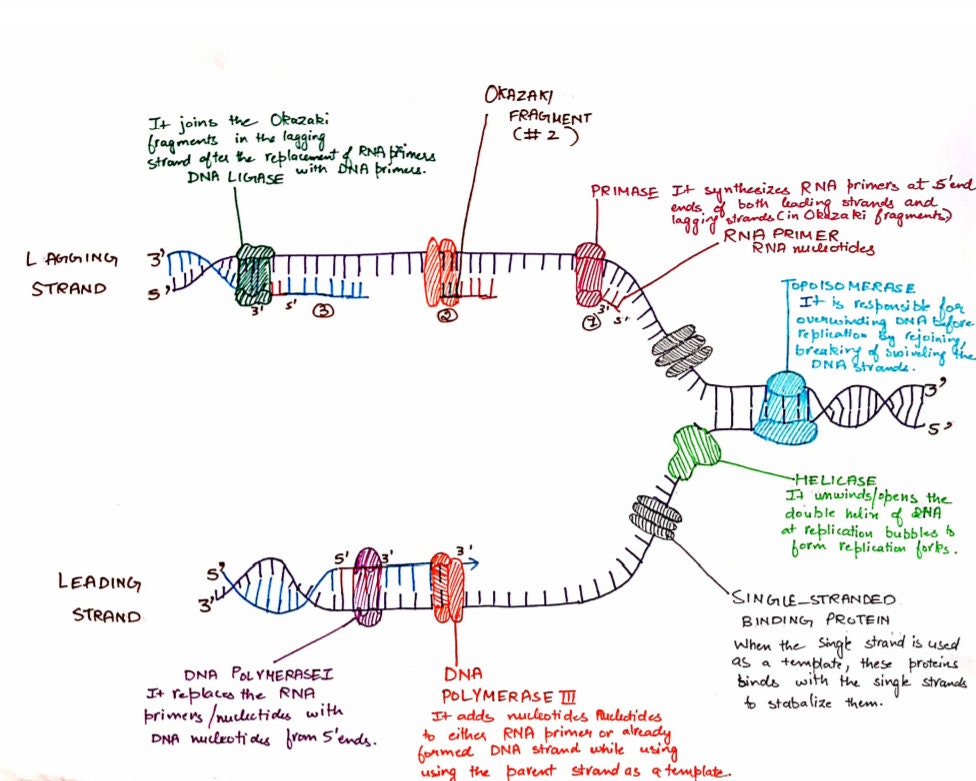 OKAZAKI
FRAGMENT
(#2)
It joins the Okazaki
fragments in the lagging
strand after the replacement of RNA primers
DNA LIGASE with DNA primers.
PRIMASE It synthesizes RNA primers at 5'end
ends of both leading strands and
lagging strands (in Okazaki fragments)
RNA PRIMER
RNA nucleotides
LAGGING
STRAND
3'
5'
3'
5'
③
②
①
3'
5'
TOPOISOMERASE
It is responsible for
overwinding DNA before
replication by rejoining,
breaking of swiveling the
DNA strands.
3'
5'
HELICASE
It unwinds/opens the
double helix of DNA
at replication bubbles to
form replication forks.
LEADING
STRAND
5'
3'
5'
3'
3'
SINGLE-STRANDED
BINDING PROTEIN
When the single strand is used
as a template, these proteins
binds with the single strands
to stabalize them.
DNA POLYMERASE I
It replaces the RNA
primers/nucletides with
DNA nucleotides from 5'ends.
DNA
POLYMERASE III
It adds nucleotides Nucleotides
to either RNA primer or already
formed DNA strand while using
using the parent strand as a template.